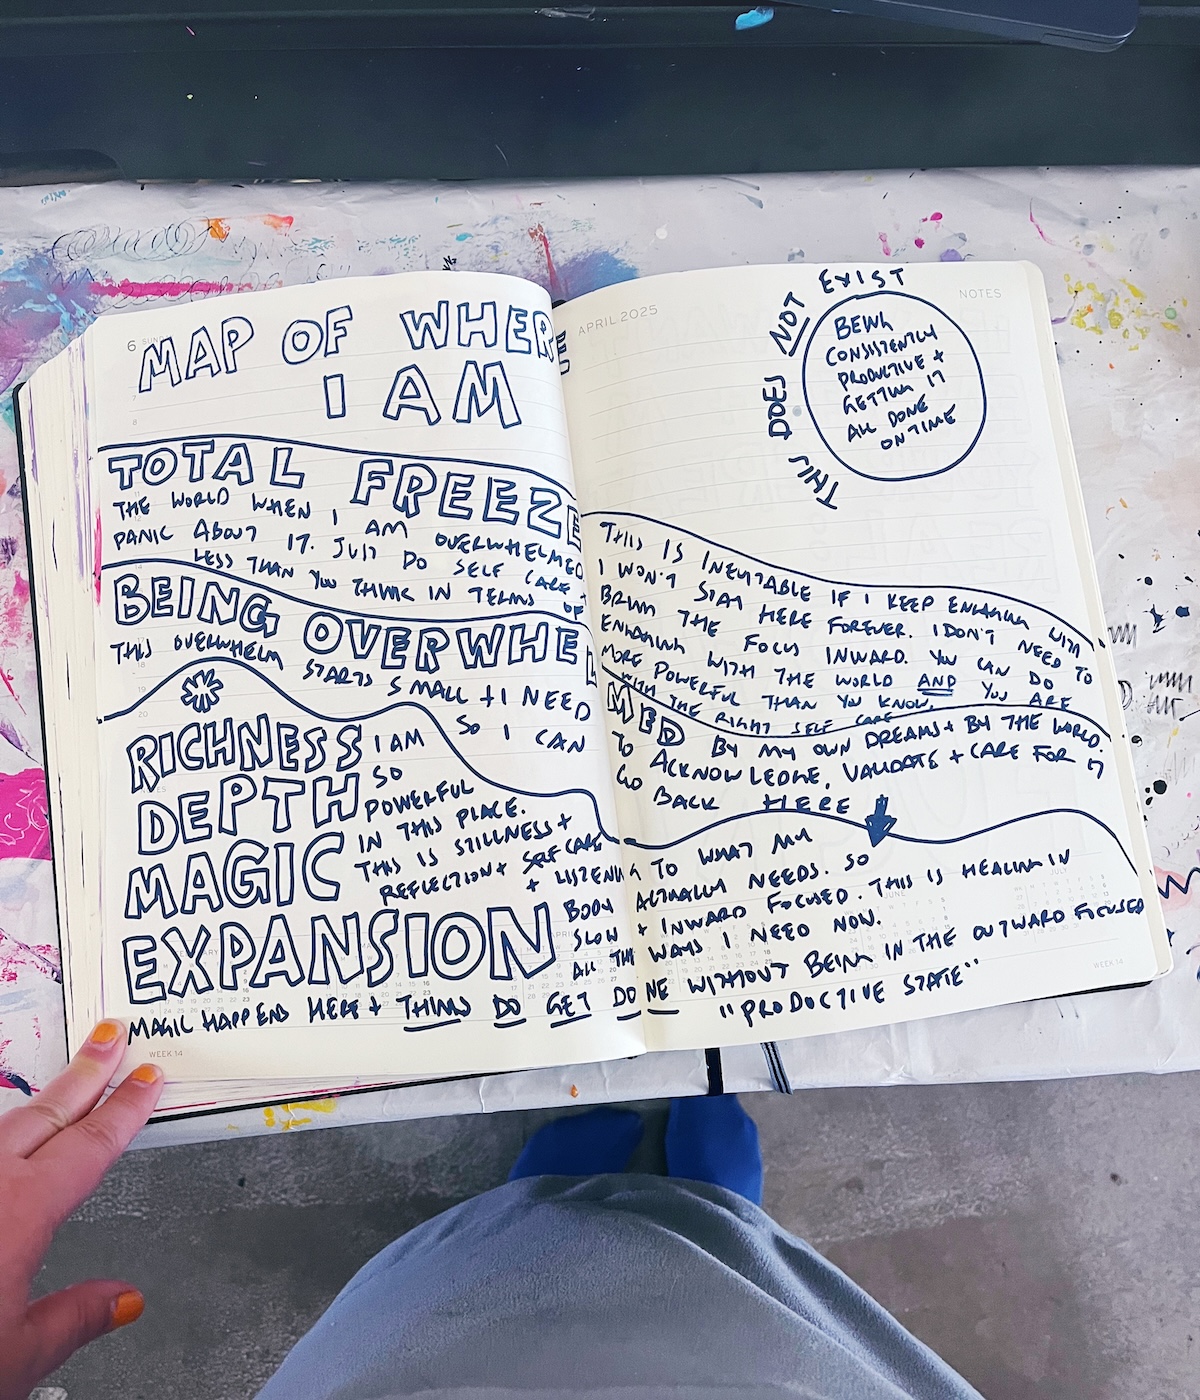 6 SUN
MAP OF WHERE
I AM
APRIL 2025
NOTES
THIS DOES NOT EXIST
BEING
CONSISTENTLY
PRODUCTIVE +
GETTING IT
ALL DONE
ON TIME
TOTAL FREEZE
THIS IS INEVITABLE IF I KEEP ENGAGING WITH
THE WORLD WHEN I AM OVERWHELMED I WON'T STAY HERE FOREVER. I DON'T NEED TO
PANIC ABOUT IT. JUST DO SELF CARE + BRING THE FOCUS INWARD. YOU CAN DO
LESS THAN YOU THINK IN TERMS OF ENGAGING WITH THE WORLD AND YOU ARE
MORE POWERFUL THAN YOU KNOW.
WITH THE RIGHT SELF CARE
BEING OVERWHELMED BY MY OWN DREAMS + BY THE WORLD.
THIS OVERWHELM STARTS SMALL + I NEED TO ACKNOWLEDGE, VALIDATE + CARE FOR IT
SO I CAN GO BACK HERE
RICHNESS
DEPTH
MAGIC
EXPANSION
I AM
SO
POWERFUL
IN THIS PLACE.
THIS IS STILLNESS +
REFLECTION + SELF CARE
+ LISTENING TO WHAT MY
BODY ACTUALLY NEEDS. SO
SLOW + INWARD FOCUSED. THIS IS HEALING IN
ALL THE WAYS I NEED NOW.
MAGIC HAPPENS HERE + THINGS DO GET DONE WITHOUT BEING IN THE OUTWARD FOCUSED
"PRODUCTIVE STATE"
WEEK 14
WEEK 14